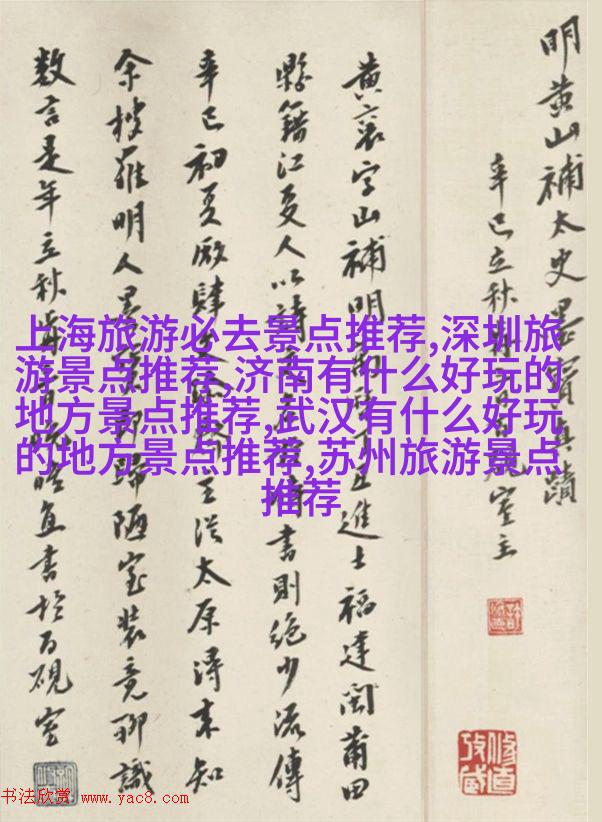 明黄山補太史墨寶真蹟
辛巳立秋百硯室主
黄襄字山補明進士福建閩莆田
縣籍江夏人以詩書則絶少流傳
辛巳初夏廠肆王太原得来知
余搜羅明人墨歸陋室装竟聊識
數言是年立秋書於百硯室
上海旅游必去景点推荐,深圳旅
游景点推荐,济南有什么好玩的
地方景点推荐,武汉有什么好玩
的地方景点推荐,苏州旅游景点
推荐
书法欣赏 www.yac8.com